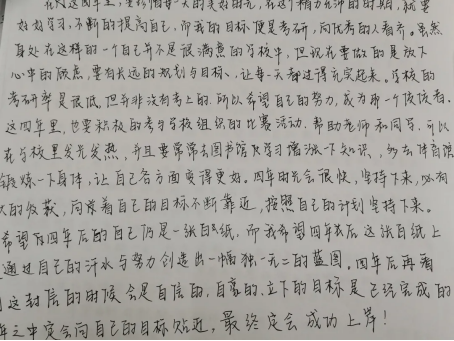 在这四年里,要珍惜每一天的美好时光,在这个精力充沛的时期,就要
好好学习,不断的提高自己,而我的目标便是考研,向优秀的人看齐。虽然
身处在这样的一个自己并不是很满意的学校中,但现在要做的是放下
心中的顾虑,要有长远的规划与目标,让每一天都过得充实起来。学校的
考研率是很低,但并非没有考上的.所以希望自己的努力,成为那一个佼佼者.
这四年里,也要积极的参与学校组织的比赛活动.帮助老师和同学.可以
在学校里发光发热,并且要常常去图书馆学习增强一下知识,多去体育馆
锻炼一下身体,让自己各方面变得更好。四年时光会很快,坚持下来,必有
大的收获,向着自己的目标不断靠近,按照自己的计划坚持下来。
希望四年后的自己仍是一张白纸,而我希望四年后这张白纸上
通过自己的汗水与努力创造出一幅独一无二的蓝图。四年后再看
这封信的时候会是自信的,自豪的.立下的目标是已经完成的
年之中定会向自己的目标贴近,最终定会成功上岸!